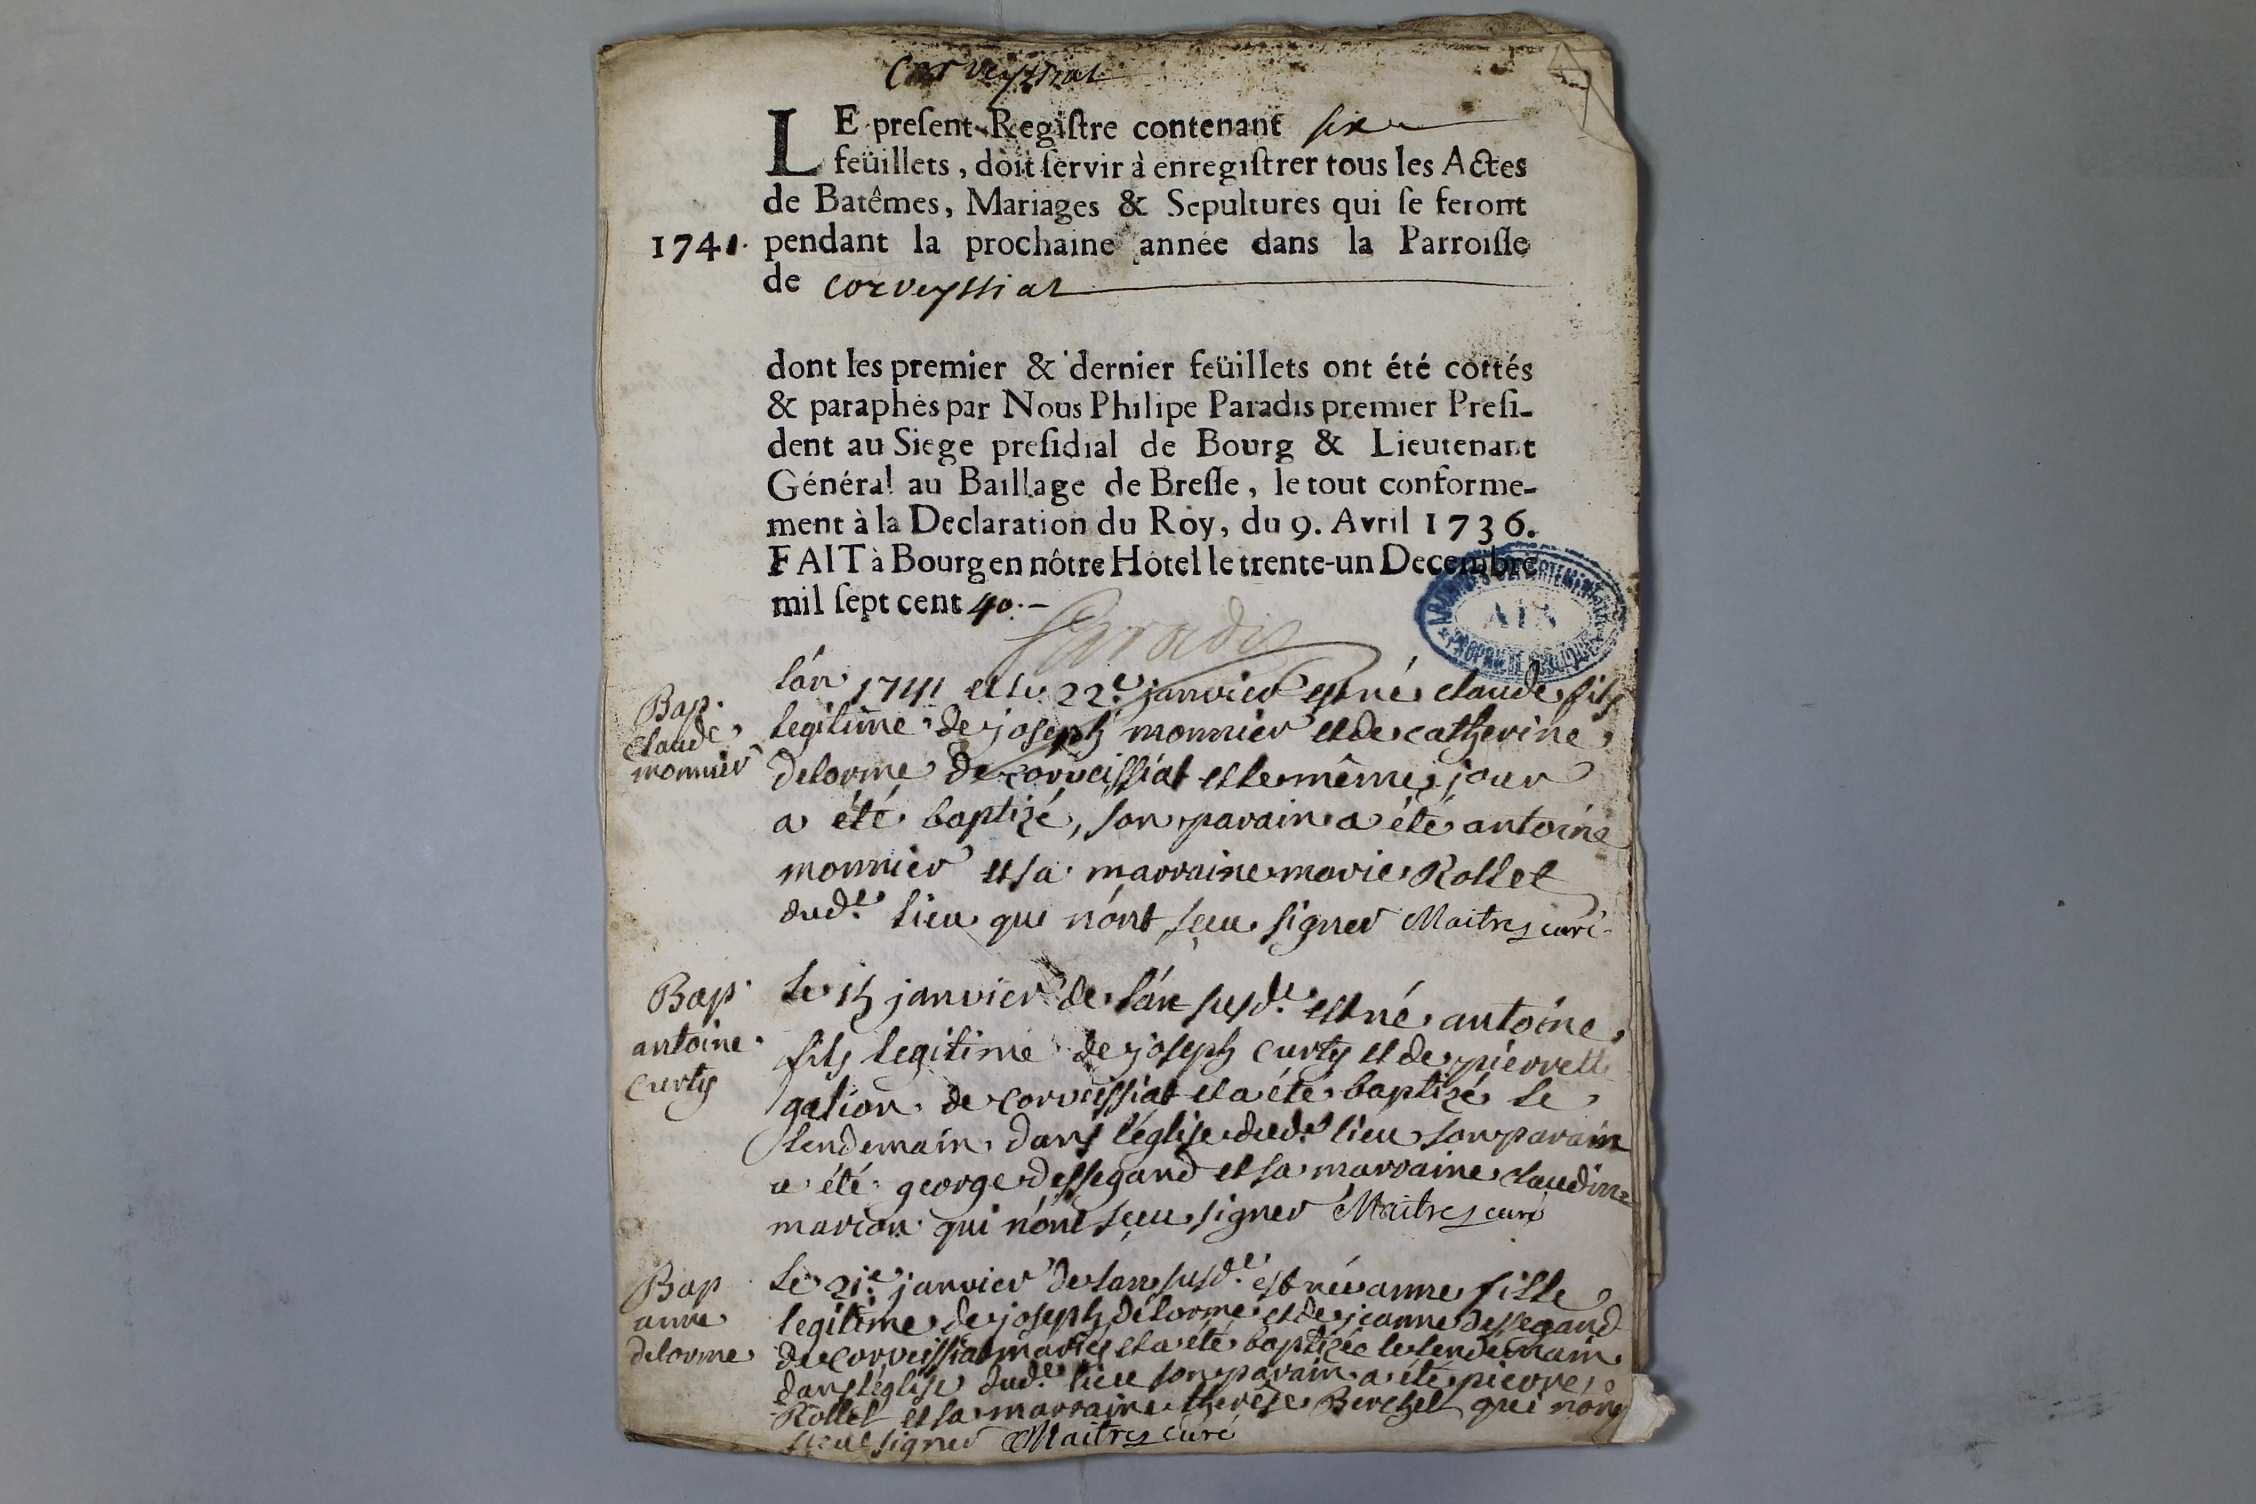 Corveyssiat
LE present Registre contenant six
feüillets, doit servir à enregistrer tous les Actes
de Batêmes, Mariages & Sepultures qui se feront
1741. pendant la prochaine année dans la Parroisse
de corveyssiat
dont les premier & dernier feüillets ont été cottés
& paraphés par Nous Philipe Paradis premier Presi-
dent au Siege presidial de Bourg & Lieutenant
Général au Baillage de Bresse, le tout conforme-
ment à la Declaration du Roy, du 9. Avril 1736.
FAIT à Bourg en nôtre Hôtel le trente-un Decembre
mil sept cent 40.-
Paradis
ARCHIVES DEPARTEMENTALES
AIN
PROPRIETE PUBLIQUE
Bap.
claude
monnier
l'an 1741 et le 22e janvier est né claude fils
legitime de joseph monnier et de catherine
delorme de corveissiat et le même jour
a été baptizé, son parain a été antoine
monnier et sa marraine marie Rollet
dudt lieu qui n'ont sçeu signer Maitres curé
Bap.
antoine
curty
le 15 janvier de l'an susdt est né antoine
fils legitime de joseph curty et de pierrette
galion de corveissiat et a été baptizé le
lendemain dans l'église dudt lieu son parain
a été george dessegand et sa marraine claudine
marion qui n'ont sçeu signer Maitres curé
Bap
anne
delorme
le 21e janvier de l'an susdt est née anne fille
legitime de joseph delorme et de jeanne dessegand
de corveissiat mariés et a été baptizée le lendemain
dans l'église dudt lieu son parain a été pierre
Rollet et sa marraine therese Berchet qui n'ont
sceu signer Maitres curé